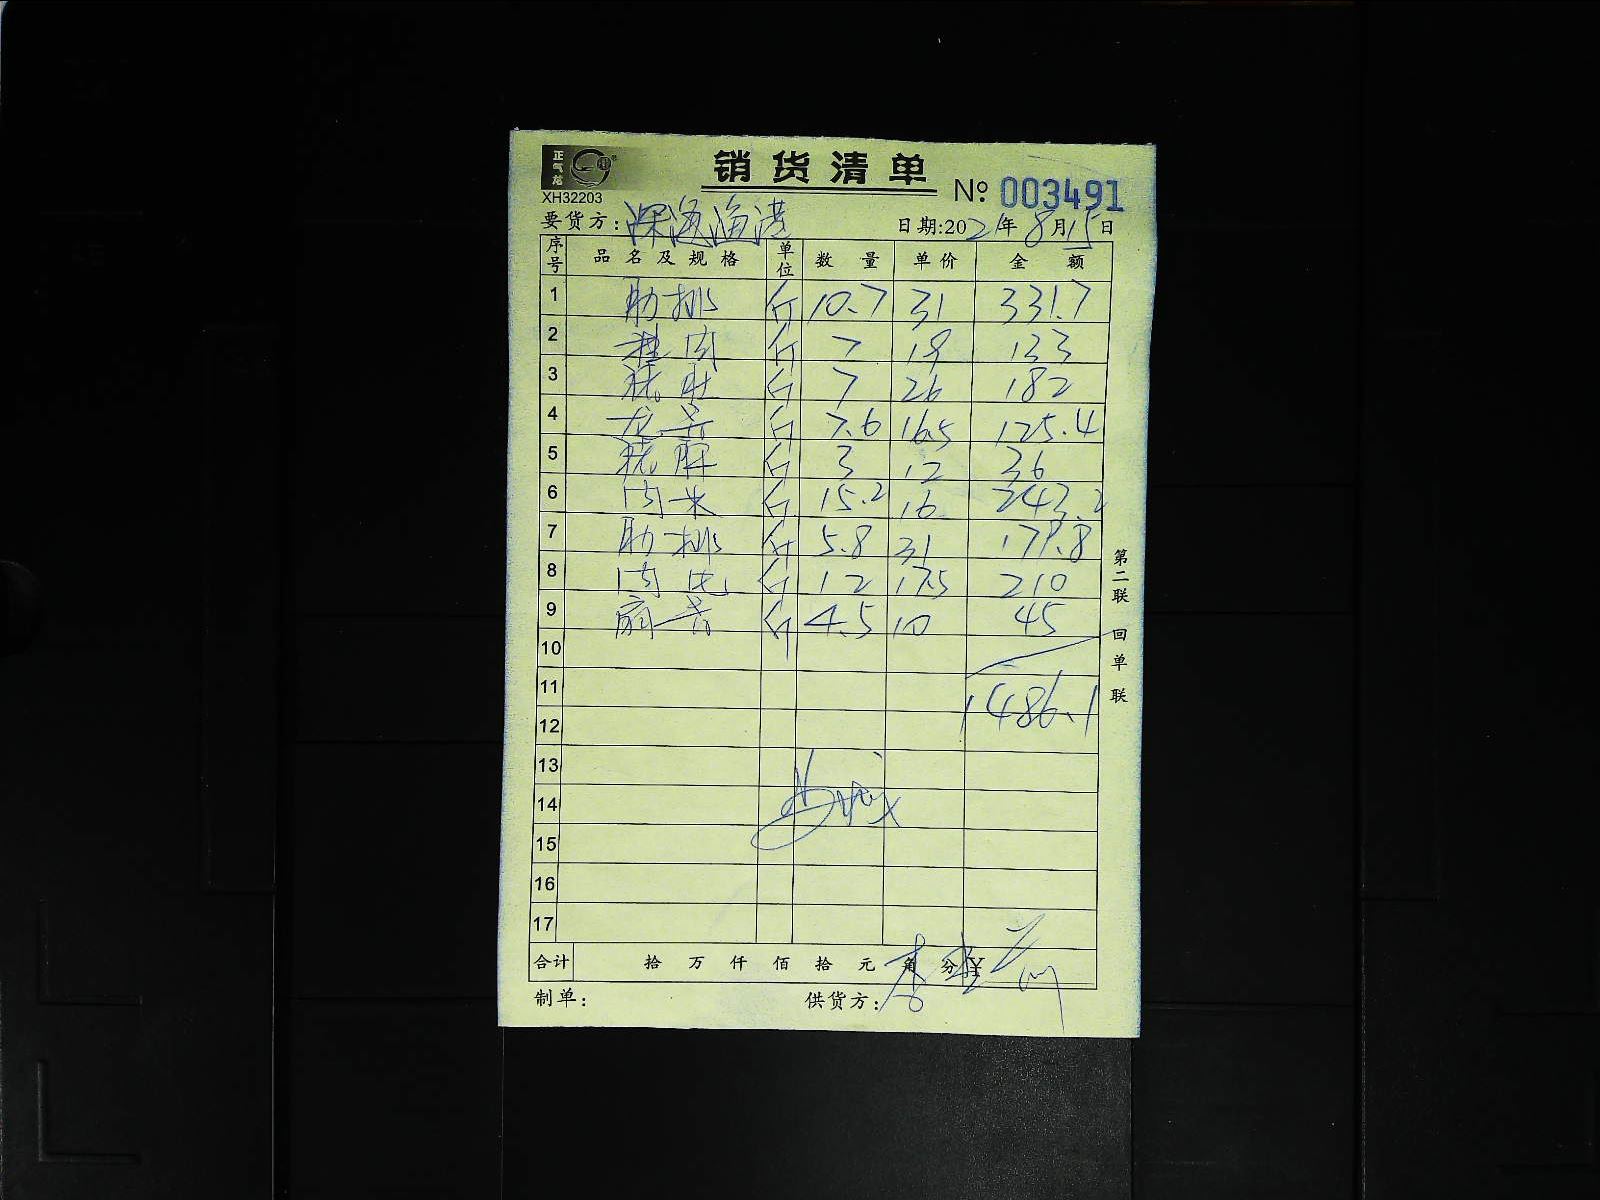 正气龙
销货清单
XH32203
№ 003491
要货方: 深海渔港 日期:2021年8月15日
序号 品名及规格 单位 数量 单价 金额
1 肋排 斤 10.7 31 331.7
2 肉 斤 7 19 133
3 猪肚 斤 7 26 182
4 龙骨 斤 7.6 16.5 125.4
5 猪肝 斤 3 12 36
6 肉米 斤 15.2 16 243.2
7 肋排 斤 5.8 31 179.8
8 肉 斤 12 17.5 210
9 扇骨 斤 4.5 10 45
10
11 1486.1
12
13
14
15
16
17
合计 拾 万 仟 佰 拾 元 角 分 ¥
制单: 供货方: 李
第二联 回单联